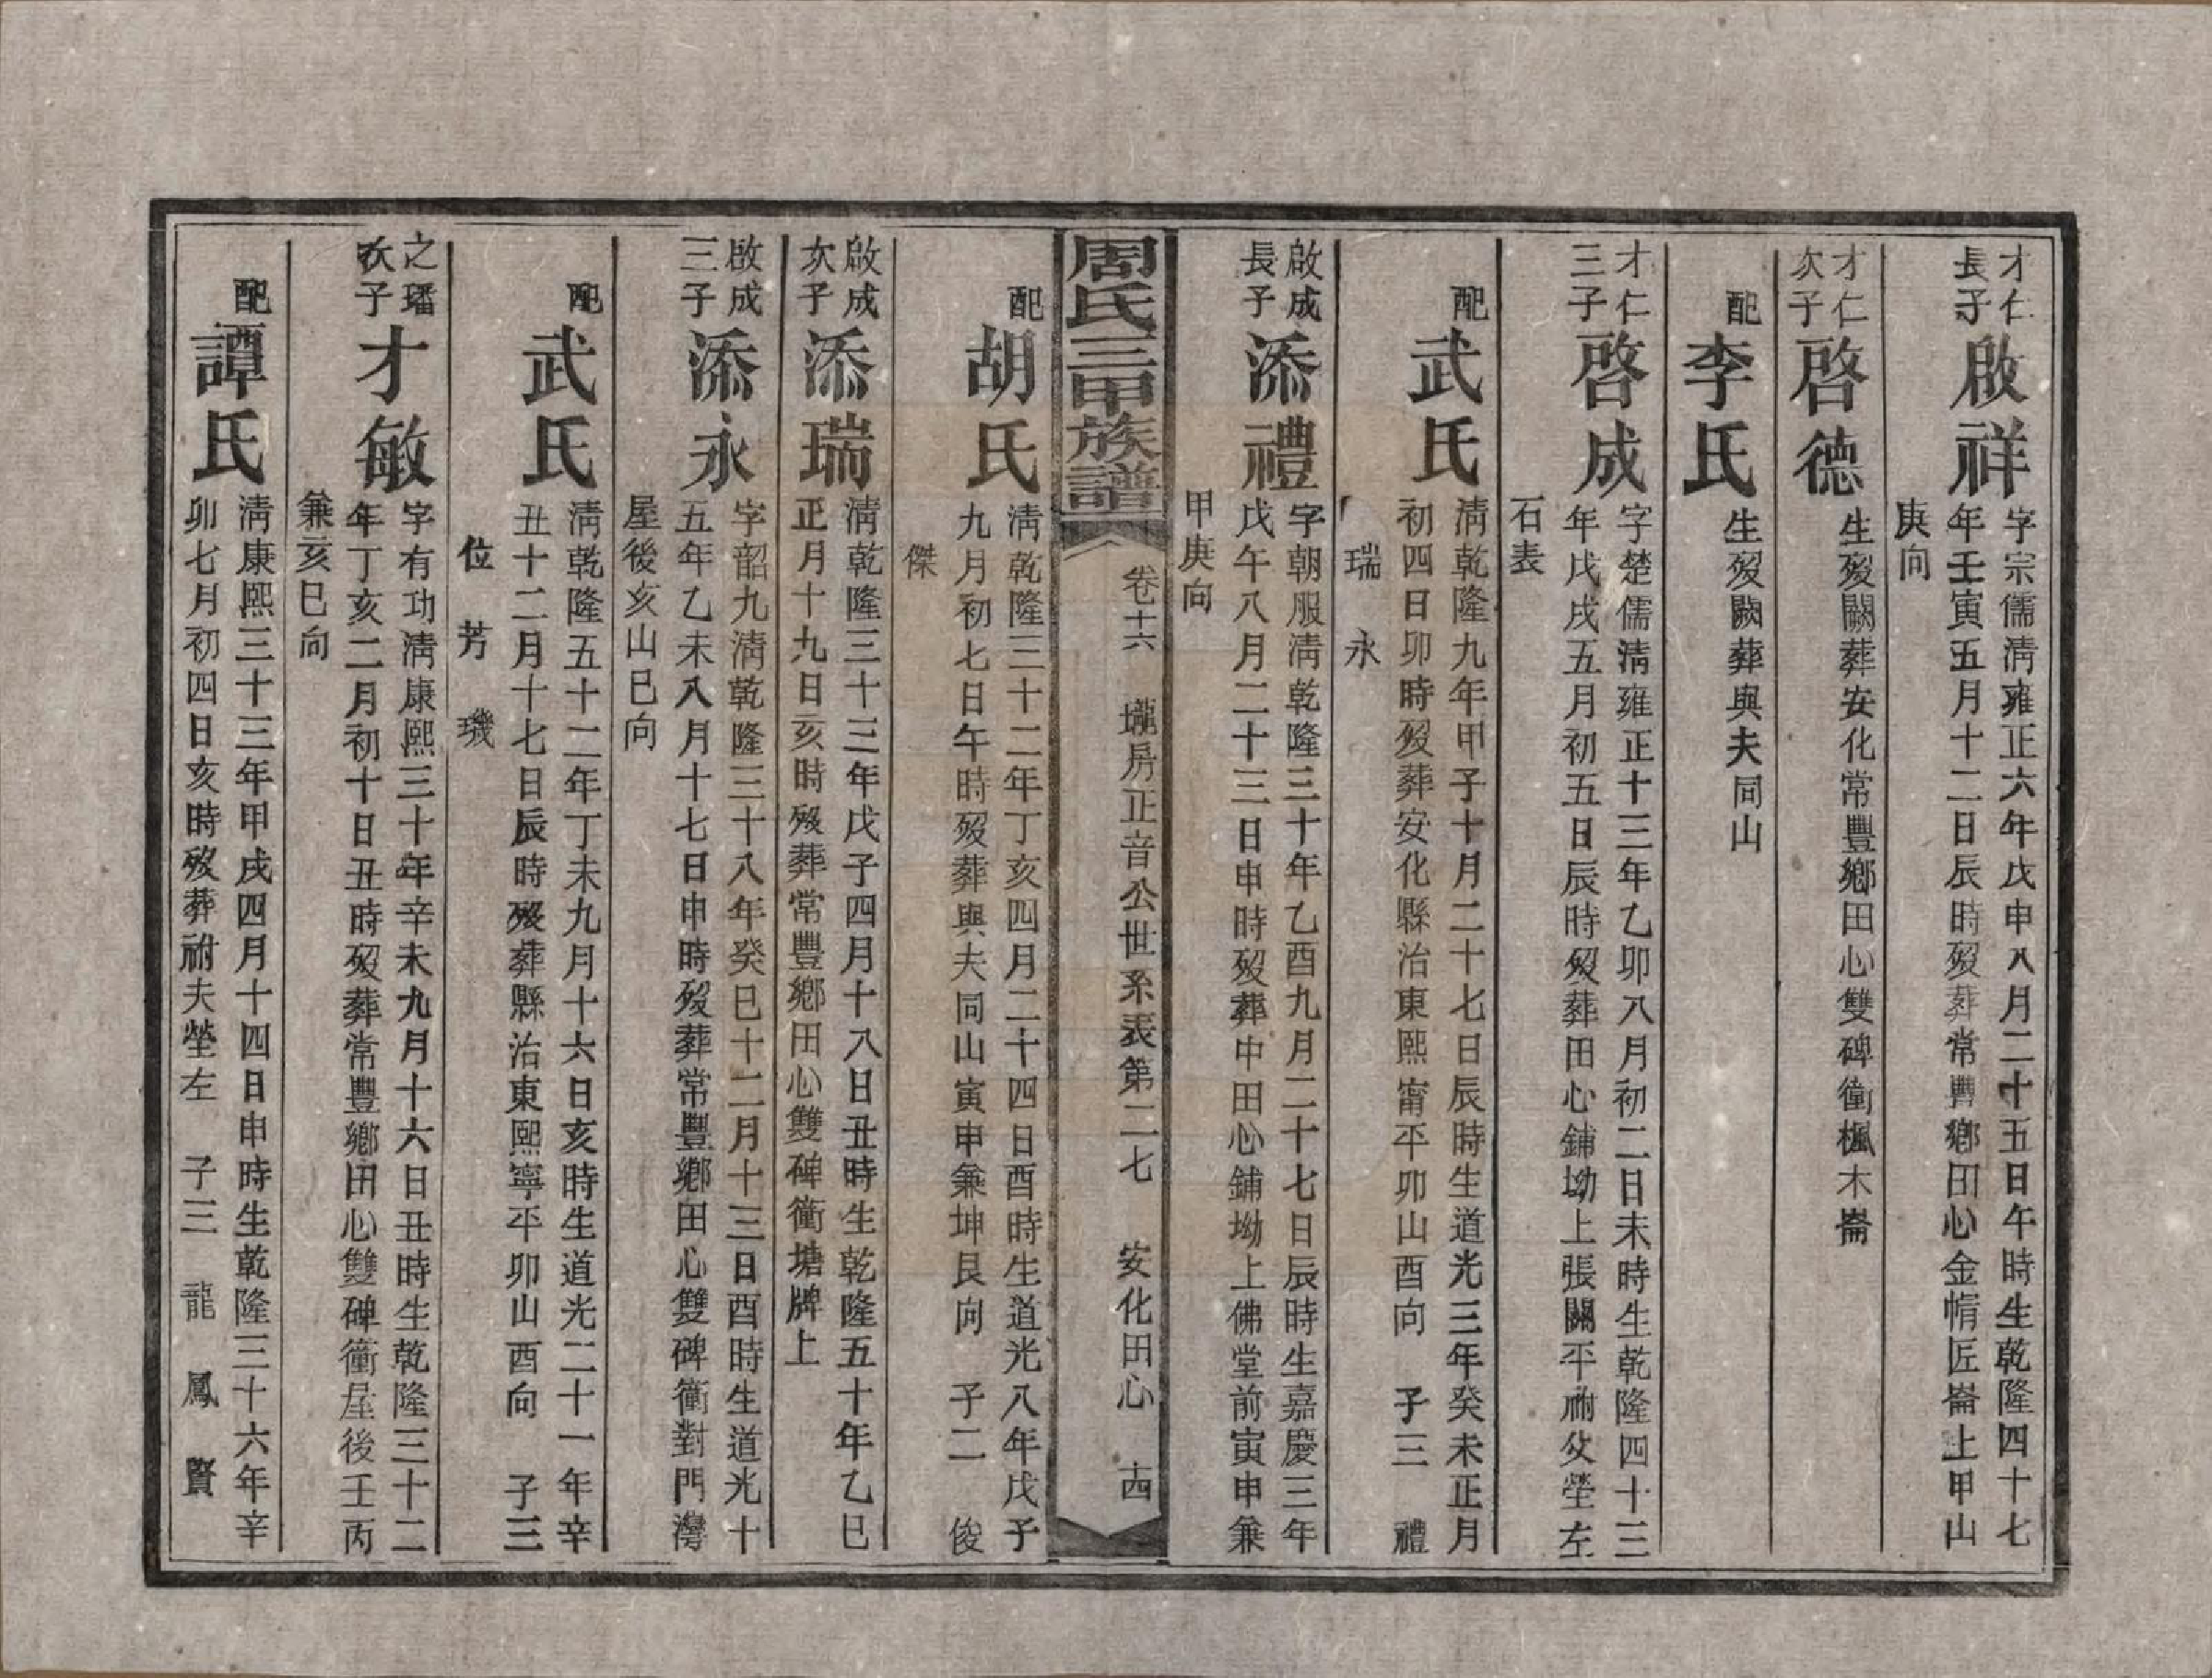 才仁
長子
啟祥
字宗儒淸雍正六年戊申八月二十五日午時生乾隆四十七
年壬寅五月十二日辰時歿葬常豐鄕田心金帽匠崙上甲山
庚向
才仁
次子
啓德
生歿闕葬安化常豐鄕田心雙碑衝楓木崙
配
李氏
生歿闕葬與夫同山
才仁
三子
啓成
字楚儒淸雍正十三年乙卯八月初二日未時生乾隆四十三
年戊戌五月初五日辰時歿葬田心鋪坳上張闢平祔父塋左
石表
配
武氏
淸乾隆九年甲子十月二十七日辰時生道光三年癸未正月
初四日卯時歿葬安化縣治東熙甯平卯山酉向 子三 禮
瑞 永
啟成
長子
添禮
字朝服淸乾隆三十年乙酉九月二十七日辰時生嘉慶三年
戊午八月二十三日申時歿葬中田心鋪坳上佛堂前寅申兼
甲庚向
周氏三甲族譜
卷十六 壠房正音公世系表第二七 安化田心 十四
配
胡氏
淸乾隆三十二年丁亥四月二十四日酉時生道光八年戊子
九月初七日午時歿葬與夫同山寅申兼坤艮向 子二 俊
傑
啟成
次子
添瑞
淸乾隆三十三年戊子四月十八日丑時生乾隆五十年乙巳
正月十九日亥時歿葬常豐鄕田心雙碑衝塘牌上
啟成
三子
添永
字韶九淸乾隆三十八年癸巳十二月十三日酉時生道光十
五年乙未八月十七日申時歿葬常豐鄕田心雙碑衝對門灣
屋後亥山巳向
配
武氏
淸乾隆五十二年丁未九月十六日亥時生道光二十一年辛
丑十二月十七日辰時歿葬縣治東熙寧平卯山酉向 子三
位 芳 璣
之璠
次子
才敏
字有功淸康熙三十年辛未九月十六日丑時生乾隆三十二
年丁亥二月初十日丑時歿葬常豐鄕田心雙碑衝屋後壬丙
兼亥巳向
配
譚氏
淸康熙三十三年甲戌四月十四日申時生乾隆三十六年辛
卯七月初四日亥時歿葬祔夫塋左 子三 龍 鳳 賢